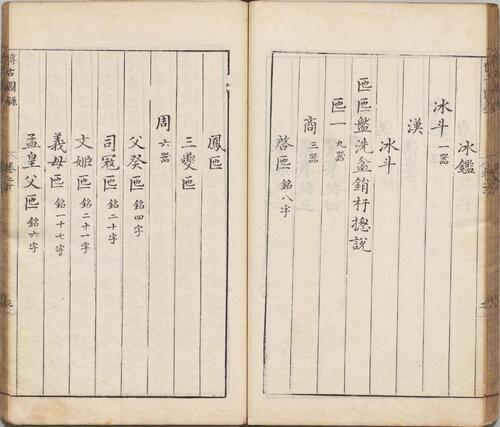 冰鑑
冰斗 一器
漢
冰斗
匜匜盤洗盆鋗杅緫說
匜一 九器
商 三器
啓匜 銘八字
鳳匜
三夔匜
周 六器
父癸匜 銘四字
司寇匜 銘二十字
文姬匜 銘二十一字
義母匜 銘一十七字
孟皇父匜 銘六字
博古圖錄